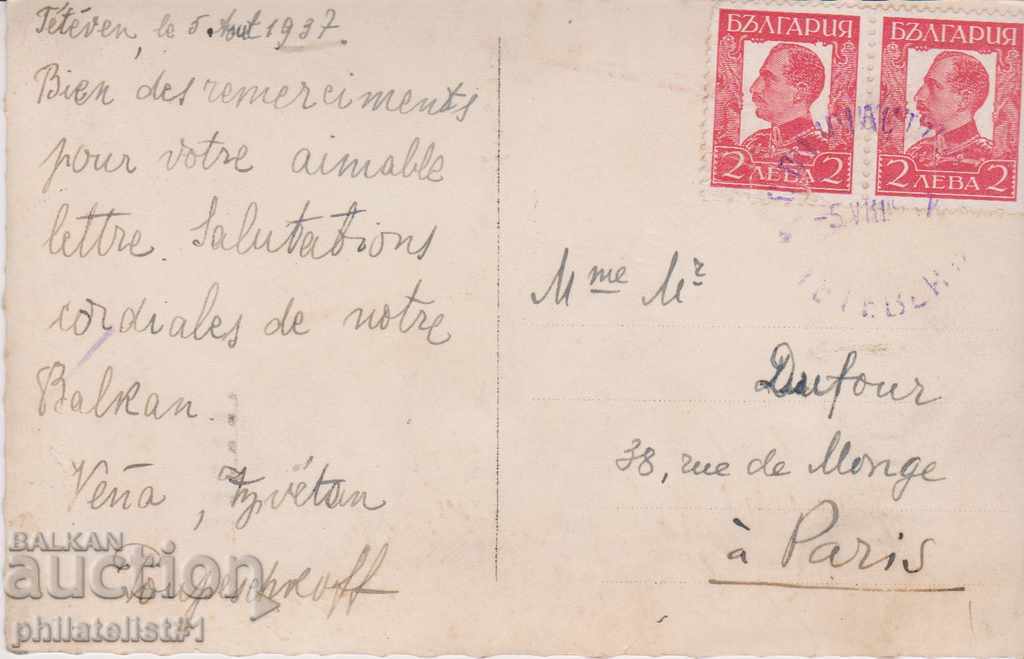 Tétéven, le 5 Aout 1937.
Bien des remerciments
pour votre aimable
lettre. Salutations
cordiales de notre
Balkan.
Véna, Tzvétan
БЪЛГАРИЯ
2 ЛЕВА 2
БЪЛГАРИЯ
2 ЛЕВА 2
-5.VIII
ТЕТЕВЕН
Mme Mr
Dufour
38, rue de Monge
à Paris
BALKAN
auction
philatelist#1